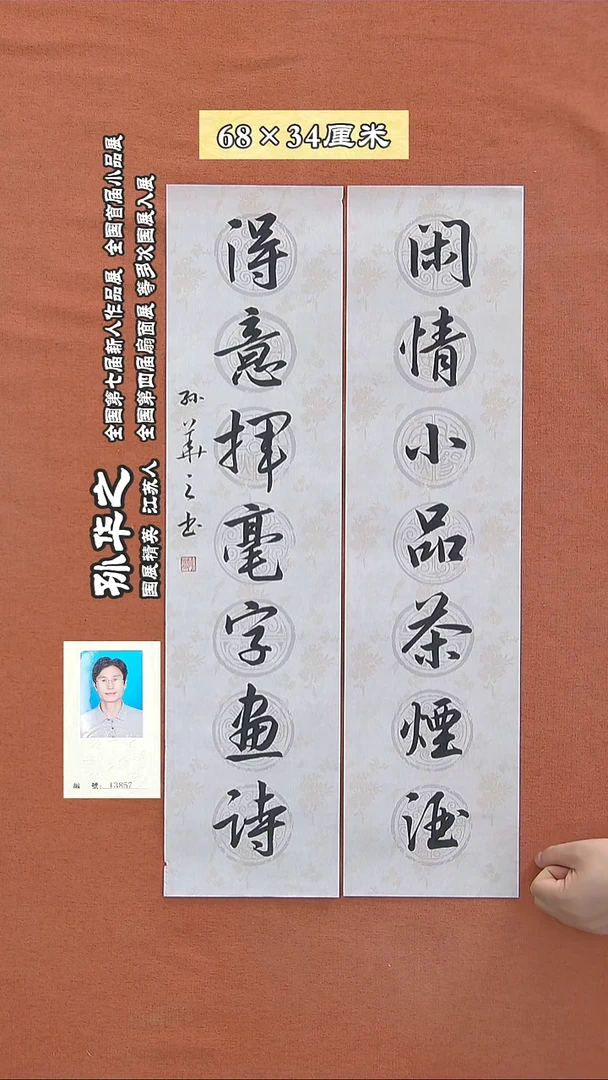 68×34厘米
闲情小品茶煙酒
得意揮毫字畫詩
孙華之书
孙华之
国展精英 江苏人
全国第七届新人作品展 全国首届小品展
全国第四届扇面展 等多次国展入展
編 號: 13857